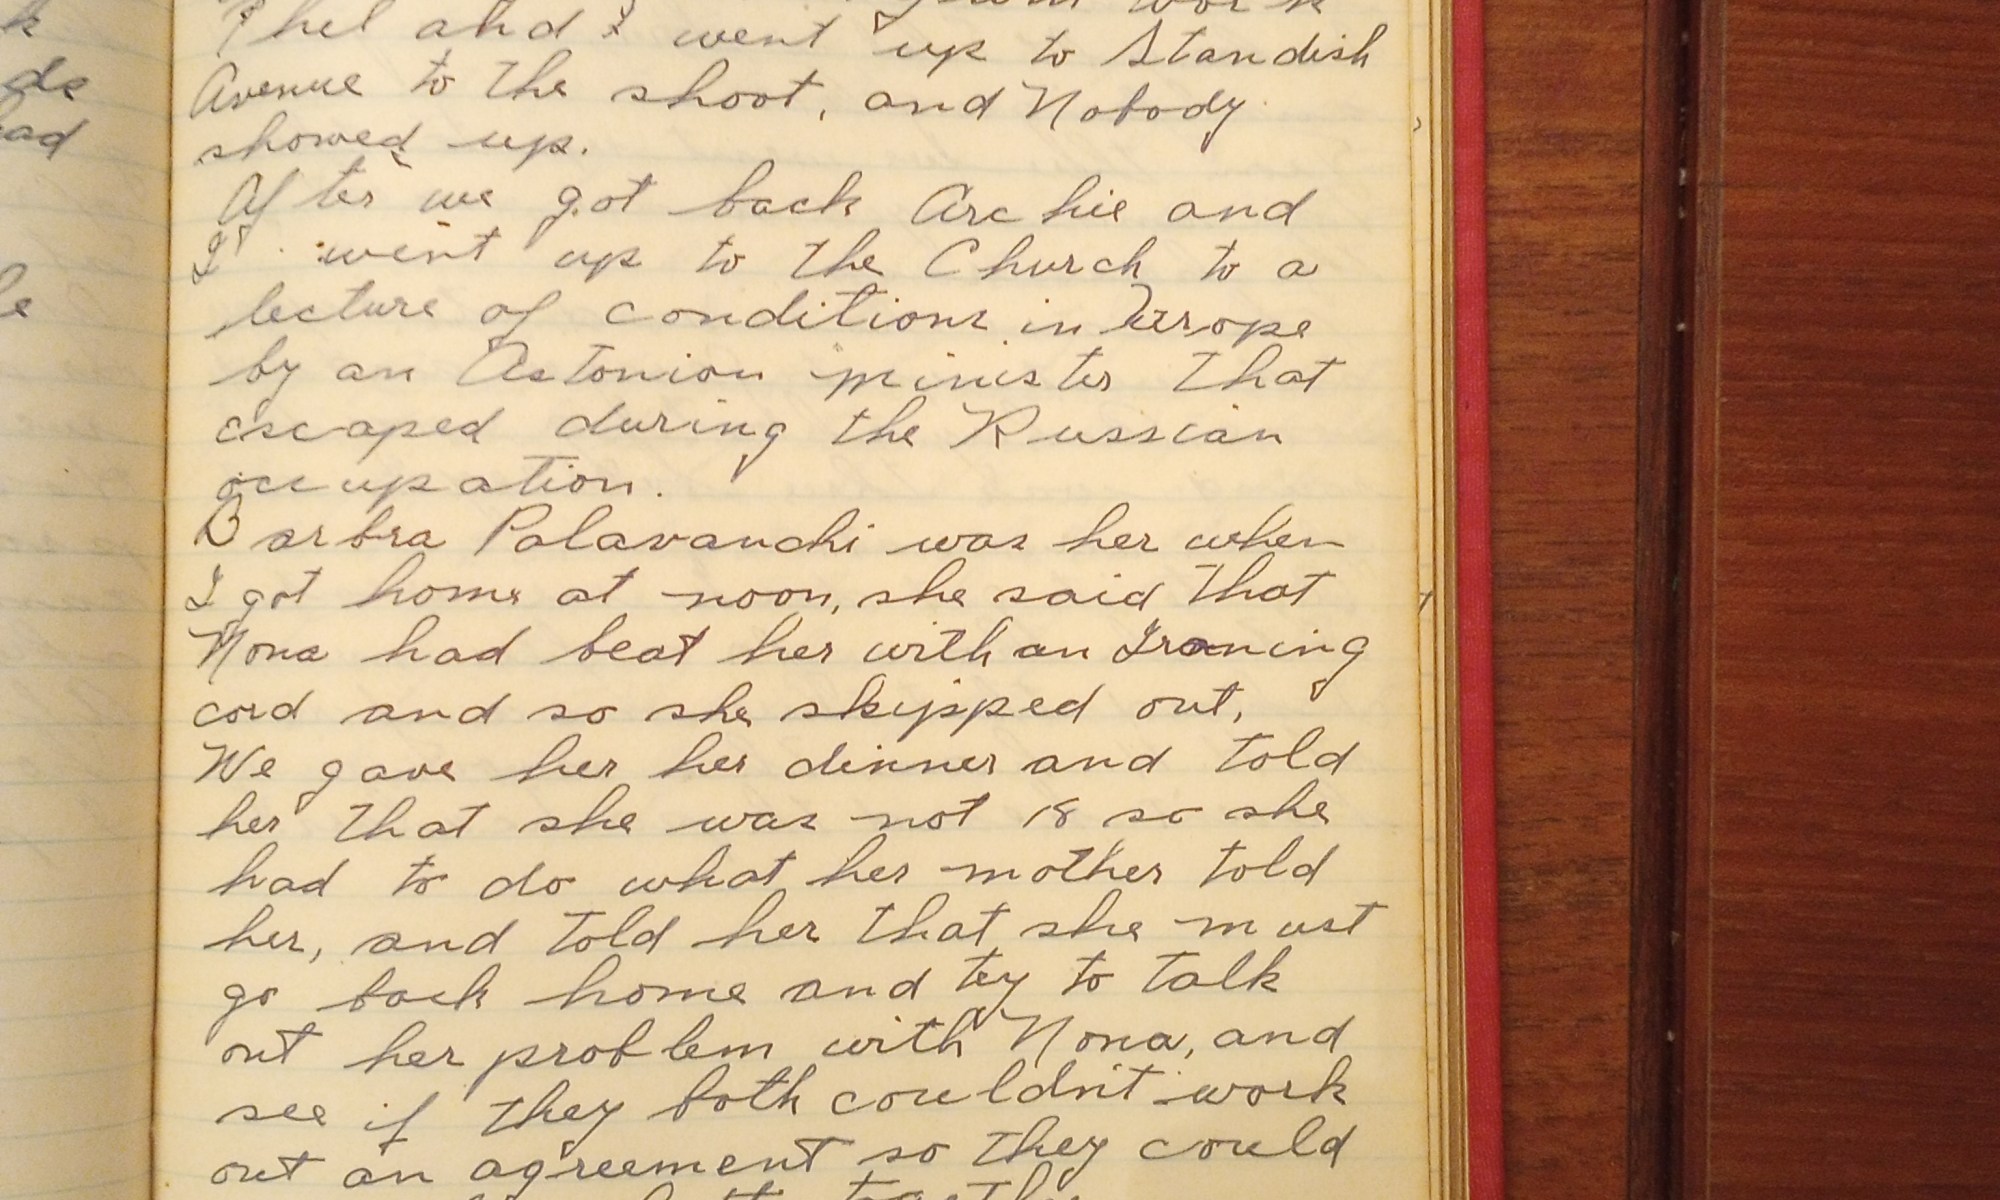 Phel and I went up to Standish
Avenue to the shoot, and Nobody
showed up.
After we got back Archie and
I went up to the Church to a
lecture of conditions in Europe
by an Astonion minister that
escaped during the Russian
occupation.
Barbra Palavanchi was her when
I got home at noon, she said that
Nona had beat her with an Ironing
cord and so she skipped out,
We gave her her dinner and told
her that she was not 18 so she
had to do what her mother told
her, and told her that she must
go back home and try to talk
out her problem with Nona, and
see if they both couldn't work
out an agreement so they could
together